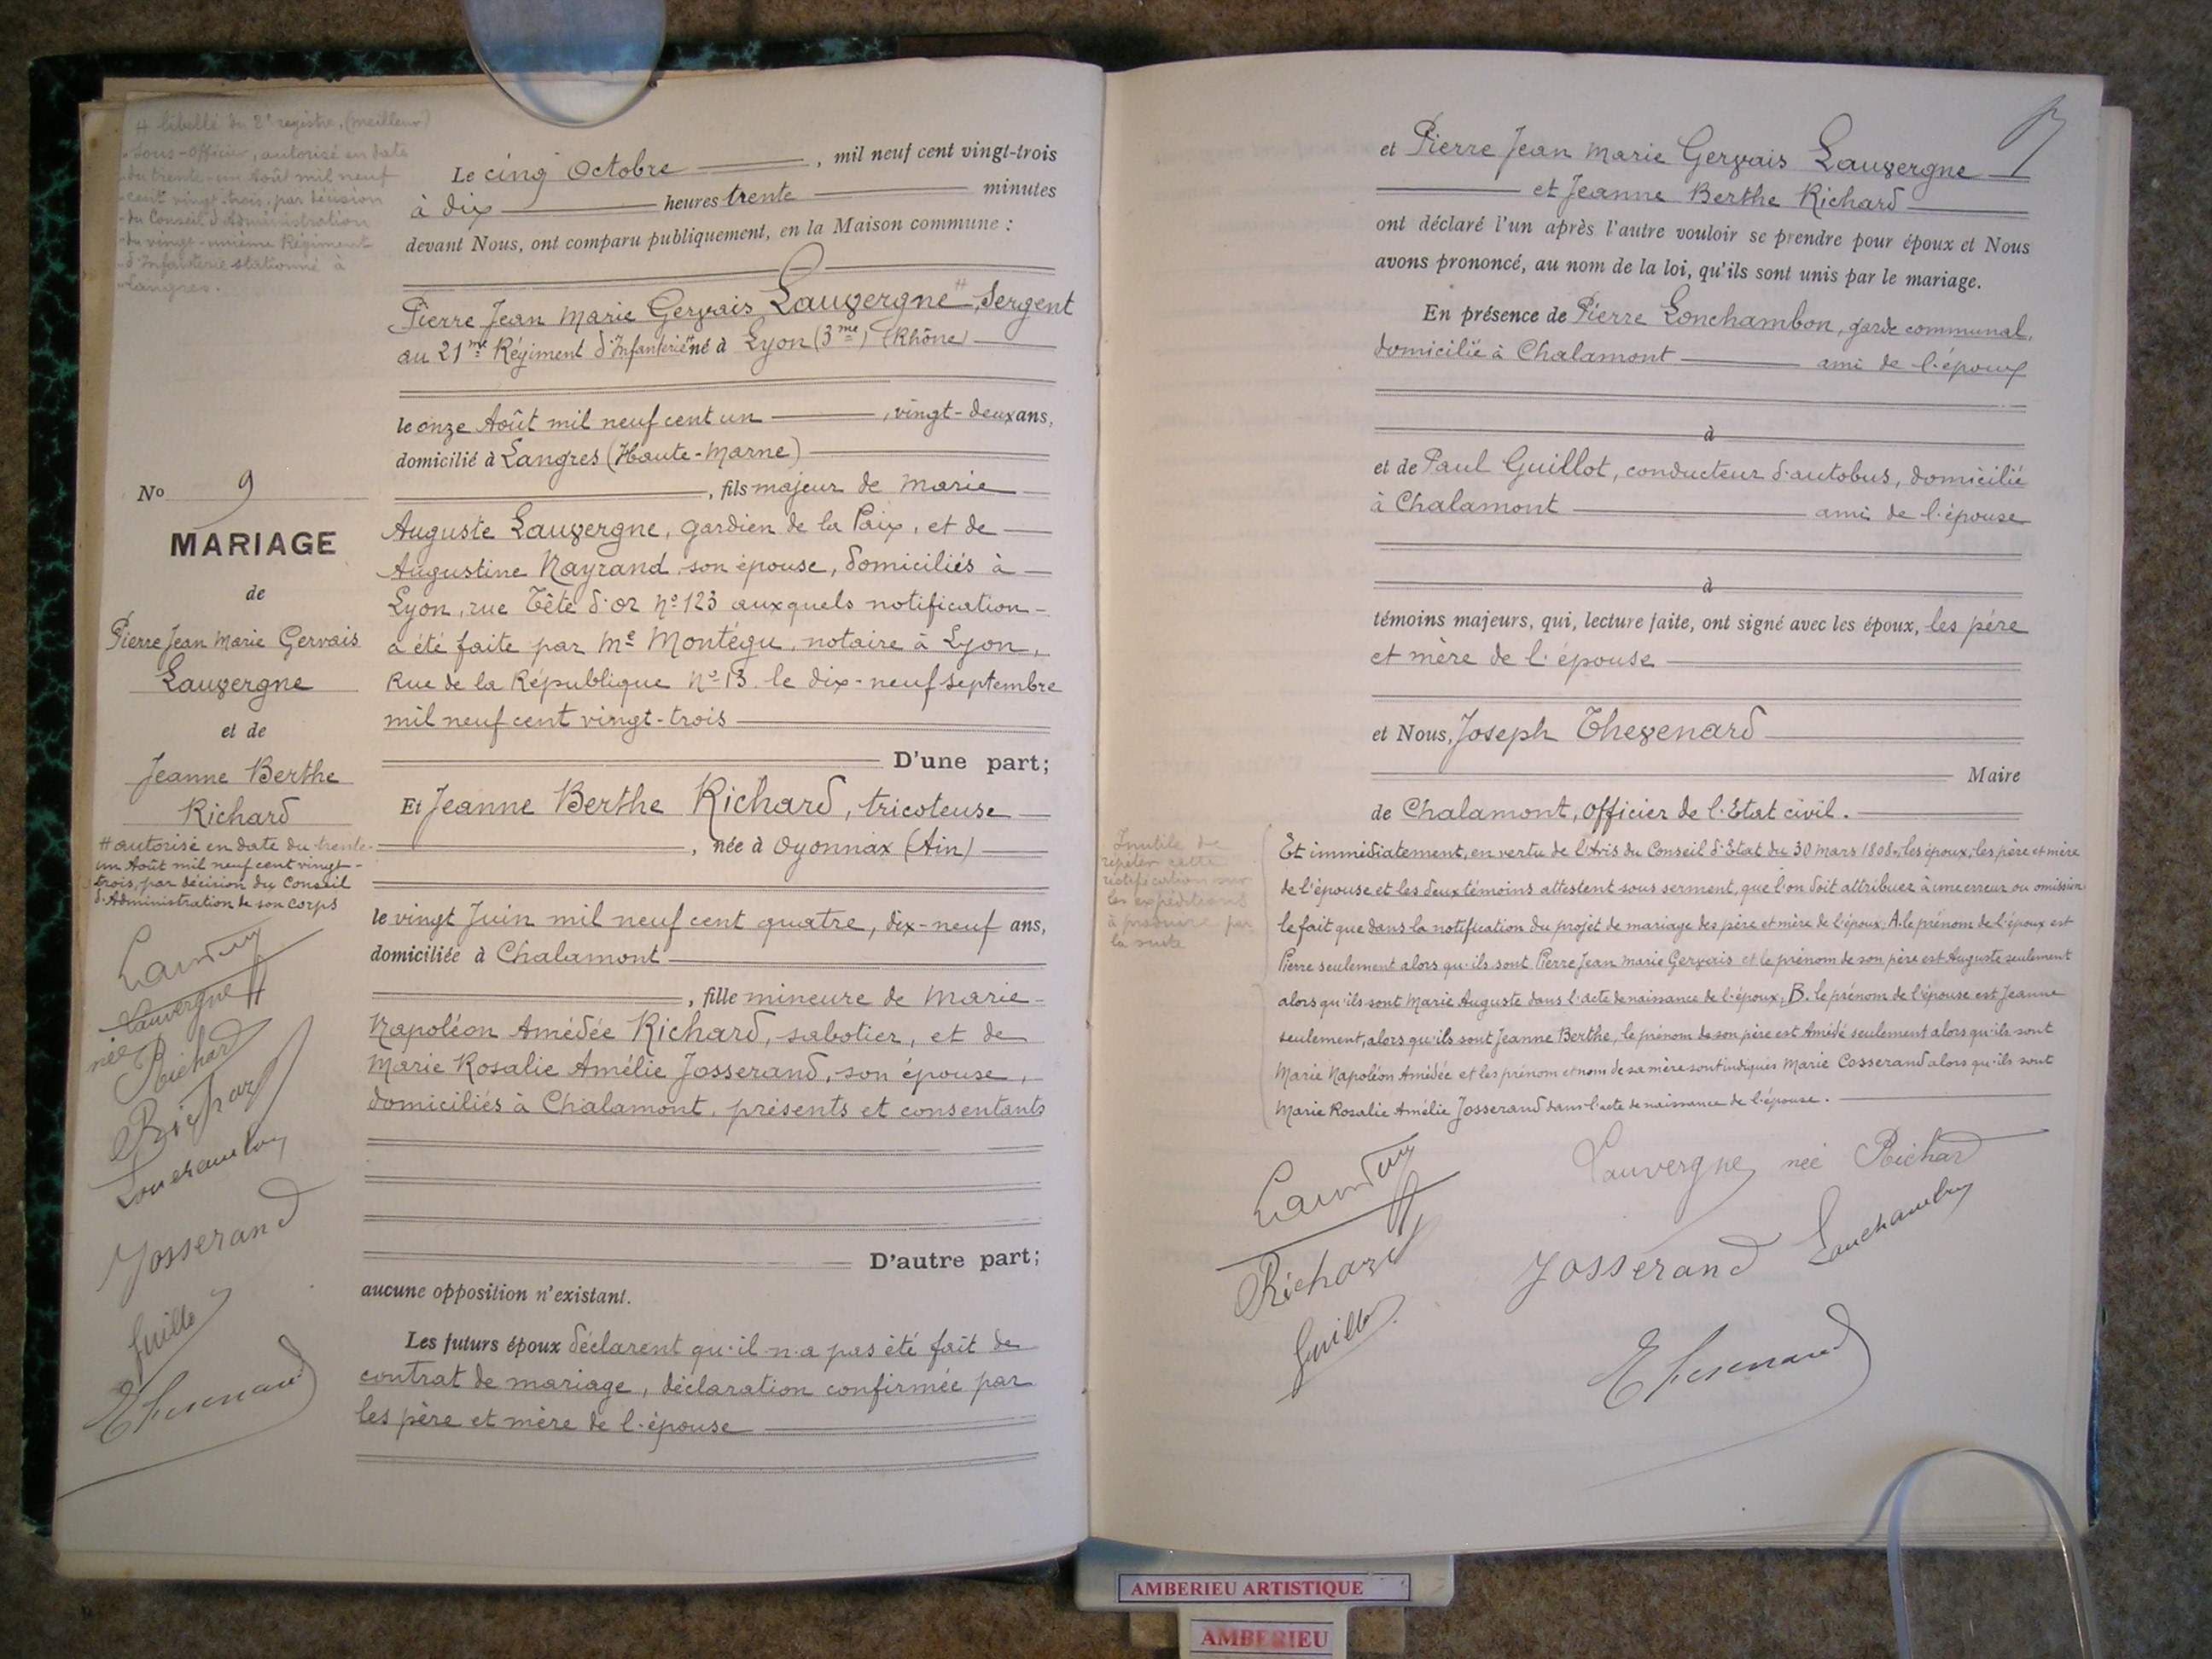 # libellé du 2e registre, (meilleur)
"sous-officier, autorisé en date
"du trente-un Août mil neuf
"cent vingt-trois, par décision
"du Conseil d'Administration
"du vingt-unième Régiment
"d'Infanterie stationné à
"Langres.
No 9
MARIAGE
de
Pierre Jean Marie Gervais
Lauvergne
et de
Jeanne Berthe
Richard
# autorisé en date du trente-
un Août mil neuf cent vingt-
trois, par décision du Conseil
d'Administration de son corps
Lauvergne
née Richard
Richard
Lonchambon
Josserand
Guillot
Thevenard
Le cinq Octobre, mil neuf cent vingt-trois
à dix heures trente minutes
devant Nous, ont comparu publiquement, en la Maison commune :
Pierre Jean Marie Gervais Lauvergne #, Sergent
au 21me Régiment d'Infanterie né à Lyon (3me) (Rhône)
le onze Août mil neuf cent un, vingt-deux ans,
domicilié à Langres (Haute-Marne)
, fils majeur de Marie
Auguste Lauvergne, gardien de la Paix, et de
Augustine Nayrand, son épouse, domiciliés à
Lyon, rue Tête d'or No 123 auxquels notification
a été faite par Me Montégu, notaire à Lyon,
Rue de la République No 13. le dix-neuf septembre
mil neuf cent vingt-trois
D'une part;
Et Jeanne Berthe Richard, tricoteuse
, née à Oyonnax (Ain)
le vingt Juin mil neuf cent quatre, dix-neuf ans,
domiciliée à Chalamont
, fille mineure de Marie
Napoléon Amédée Richard, sabotier, et de
Marie Rosalie Amélie Josserand, son épouse,
domiciliés à Chalamont, présents et consentants
D'autre part;
aucune opposition n'existant.
Les futurs époux déclarent qu'il n'a pas été fait de
contrat de mariage, déclaration confirmée par
les père et mère de l'épouse
et Pierre Jean Marie Gervais Lauvergne
et Jeanne Berthe Richard
ont déclaré l'un après l'autre vouloir se prendre pour époux et Nous
avons prononcé, au nom de la loi, qu'ils sont unis par le mariage.
En présence de Pierre Lonchambon, garde communal,
domicilié à Chalamont ami de l'époux
à
et de Paul Guillot, conducteur d'autobus, domicilié
à Chalamont ami de l'épouse
à
témoins majeurs, qui, lecture faite, ont signé avec les époux, les père
et mère de l'épouse
et Nous, Joseph Thevenard
Maire
de Chalamont, Officier de l'Etat civil.
Inutile de
répéter cette
rectification sur
les expéditions
à produire par
la suite
Et immédiatement, en vertu de l'Avis du Conseil d'Etat du 30 mars 1808, les époux, les père et mère
de l'épouse et les deux témoins attestent sous serment, que l'on doit attribuer à une erreur ou omission
le fait que dans la notification du projet de mariage des père et mère de l'époux: A. le prénom de l'époux est
Pierre seulement alors qu'ils sont Pierre Jean Marie Gervais et le prénom de son père est Auguste seulement
alors qu'ils sont Marie Auguste dans l'acte de naissance de l'époux; B. le prénom de l'épouse est Jeanne
seulement, alors qu'ils sont Jeanne Berthe, le prénom de son père est Amédé seulement alors qu'ils sont
Marie Napoléon Amédée et les prénom et nom de sa mère sont indiqués Marie Cosserand alors qu'ils sont
Marie Rosalie Amélie Josserand dans l'acte de naissance de l'épouse.
Lauvergne née Richard
Richard
Josserand
Lonchambon
Guillot
Thevenard
AMBERIEU ARTISTIQUE
AMBERIEU